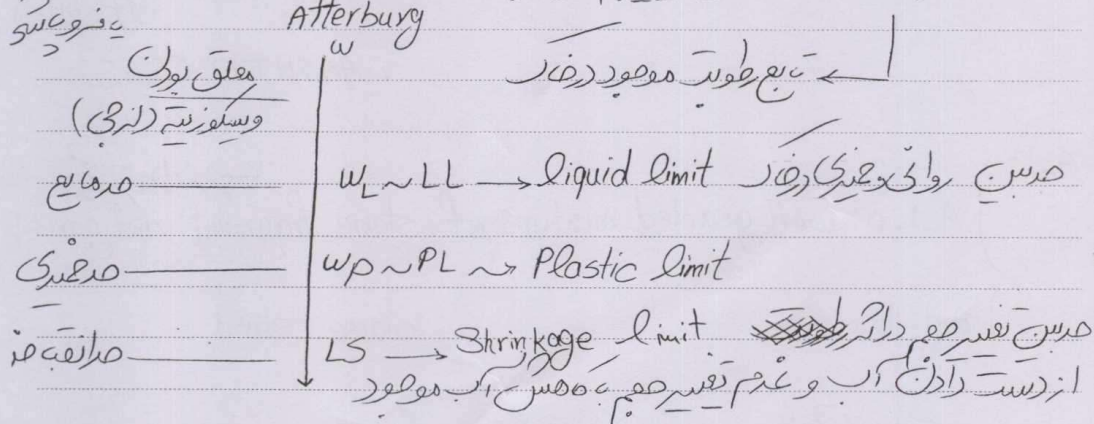 یا فروپاشی
Atterburg
ω
معلق بودن
تابع رطوبت موجود در خاک ←
ویسکوزیته (لزجی)
حد مایع ω_L ~ LL → liquid limit حدبین روانی و خمیری در خاک
حد خمیری ωp ~ PL ~> Plastic limit
حد انقباض LS → Shrinkage limit حدبین تغییر حجم در اثر
از دست دادن آب و عدم تغییر حجم با کاهش آب موجود